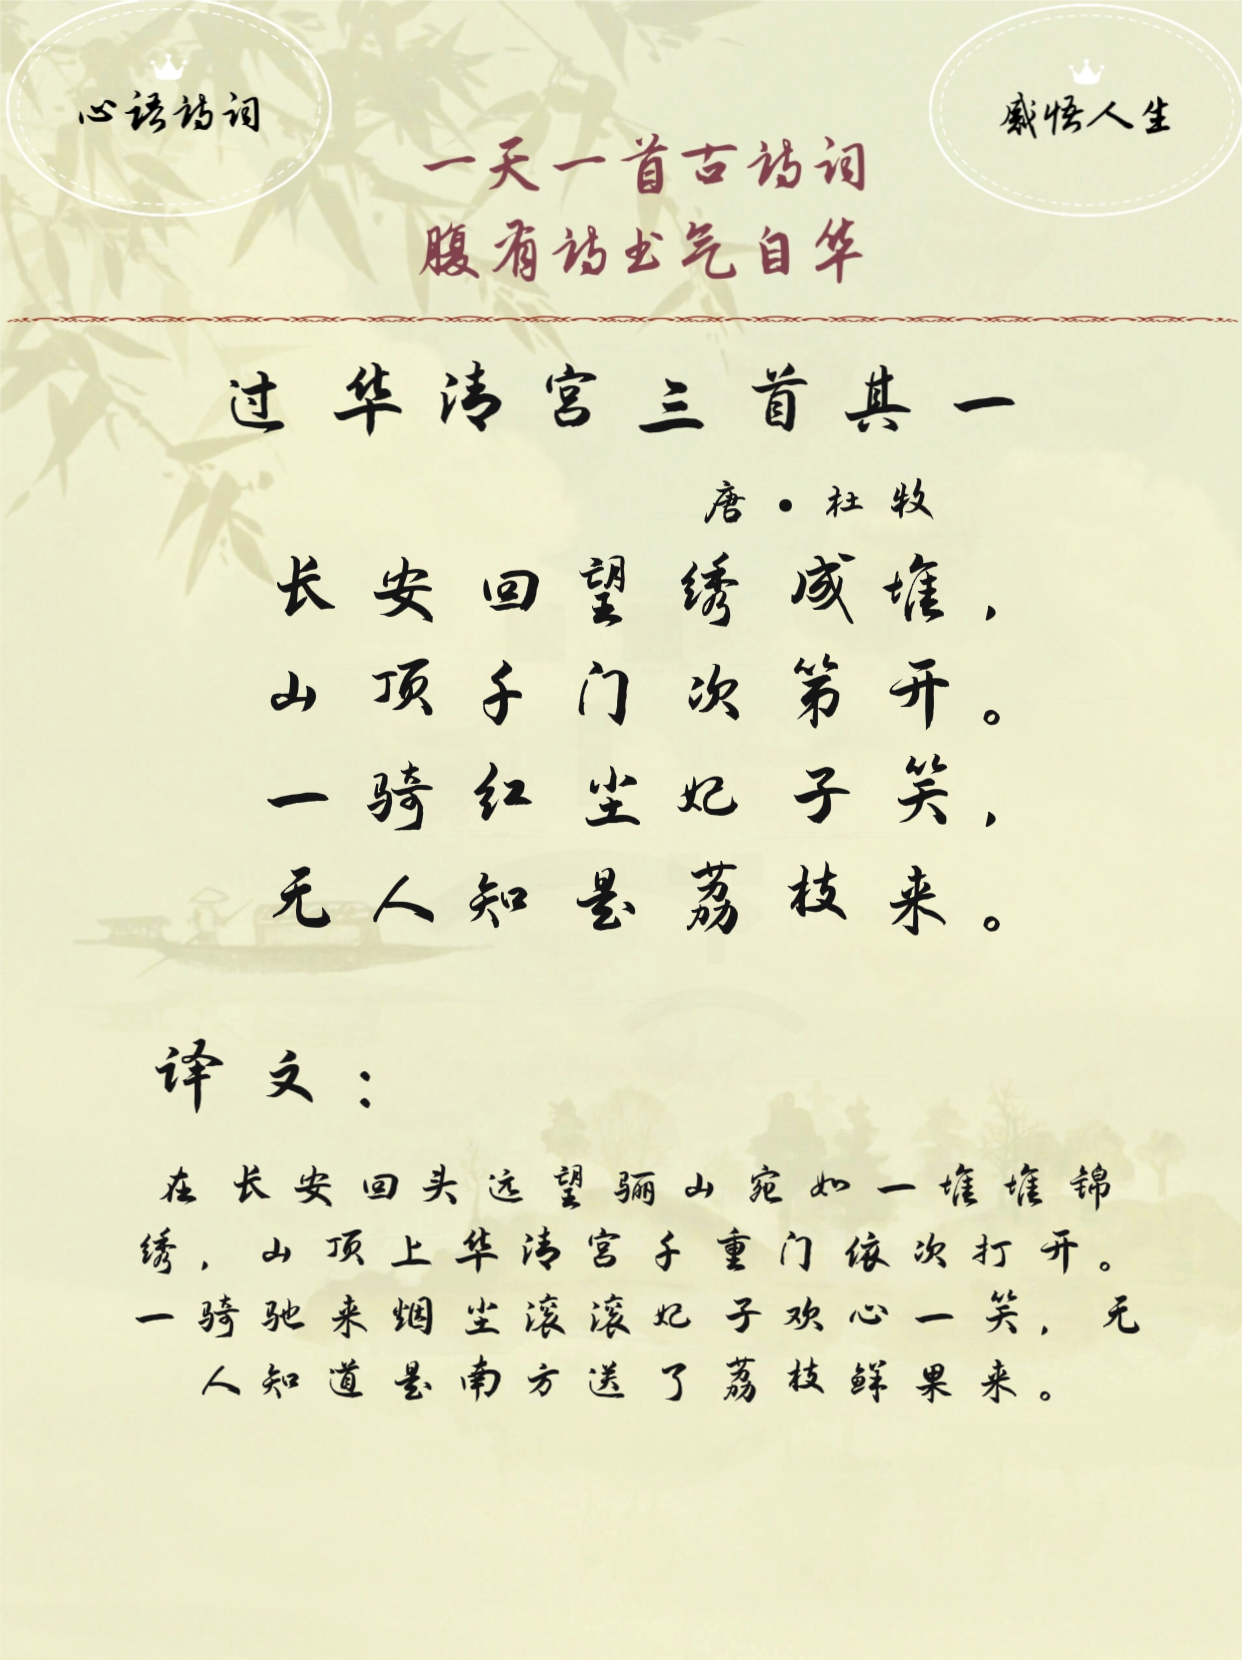 心语诗词
感悟人生
一天一首古诗词
腹有诗书气自华
过华清宫三首其一
唐·杜牧
长安回望绣成堆，
山顶千门次第开。
一骑红尘妃子笑，
无人知是荔枝来。
译文：
在长安回头远望骊山宛如一堆堆锦
绣，山顶上华清宫千重门依次打开。
一骑驰来烟尘滚滚妃子欢心一笑，无
人知道是南方送了荔枝鲜果来。